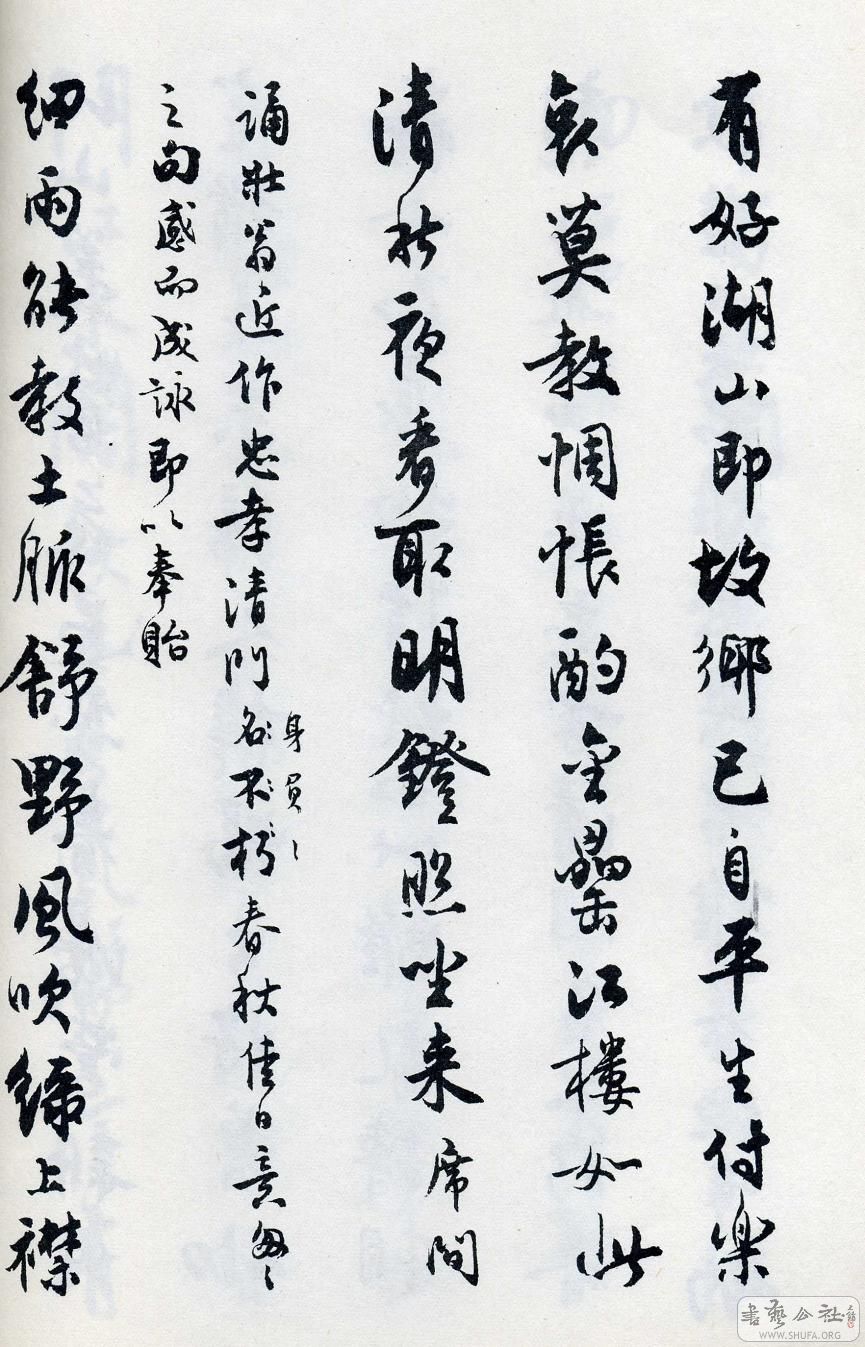 有好湖山即故鄉已自平生付樂
哀莫教惆悵酌金罍江樓如此
清秋夜看取明鐙照坐来席間
誦壯翁近作忠孝清門名不朽春秋佳日意匆〻
身負〻
之句感而成詠即以奉貽
細雨能教土脈舒野風吹綠上襟
書藝公社
WWW.SHUFA.ORG